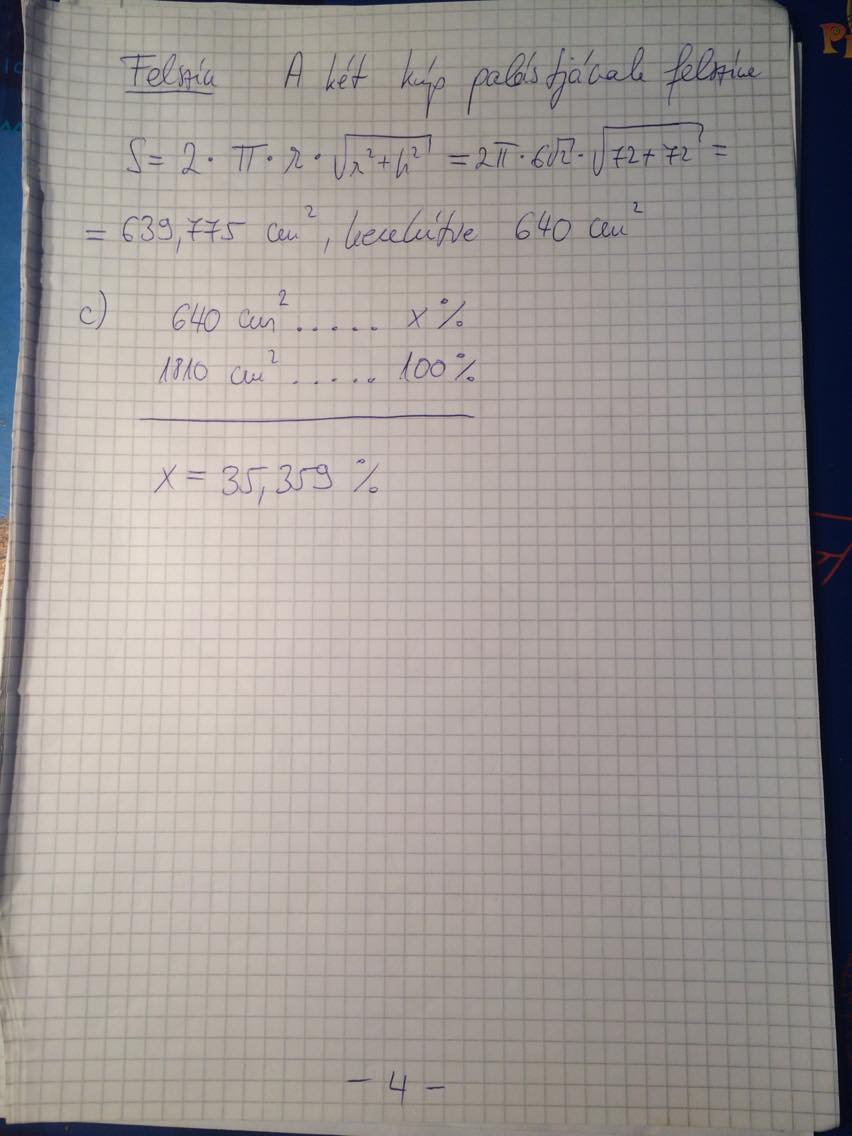 Felszín A két kúp palástjának felszíne
S = 2 · π · r · √(r² + h²) = 2π · 6√2 · √(72 + 72) =
= 639,775 cm², kerekítve 640 cm²
c) 640 cm² ..... x %
1810 cm² ...... 100 %
x = 35,359 %
- 4 -